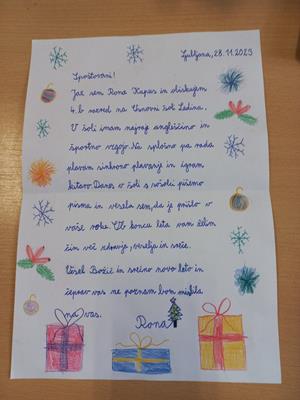 Ljubljana, 28.11.2023
Spoštovani!
Jaz sem Rona in obiskujem
4.b razred na Osnovni šoli Ledina.
V šoli imam najraje angleščino in
športno vzgojo. Na splošno pa rada
plavam sinhrono plavanje in igram
kitaro. Danes v šoli s sošolci pišemo
pisma in vesela sem, da je prišlo v
vaše roke. Ob koncu leta vam želim
čim več zdravja, veselja in sreče.
Vesel Božič in srečno novo leto in
čeprav vas ne poznam bom mislila
na vas.
Rona